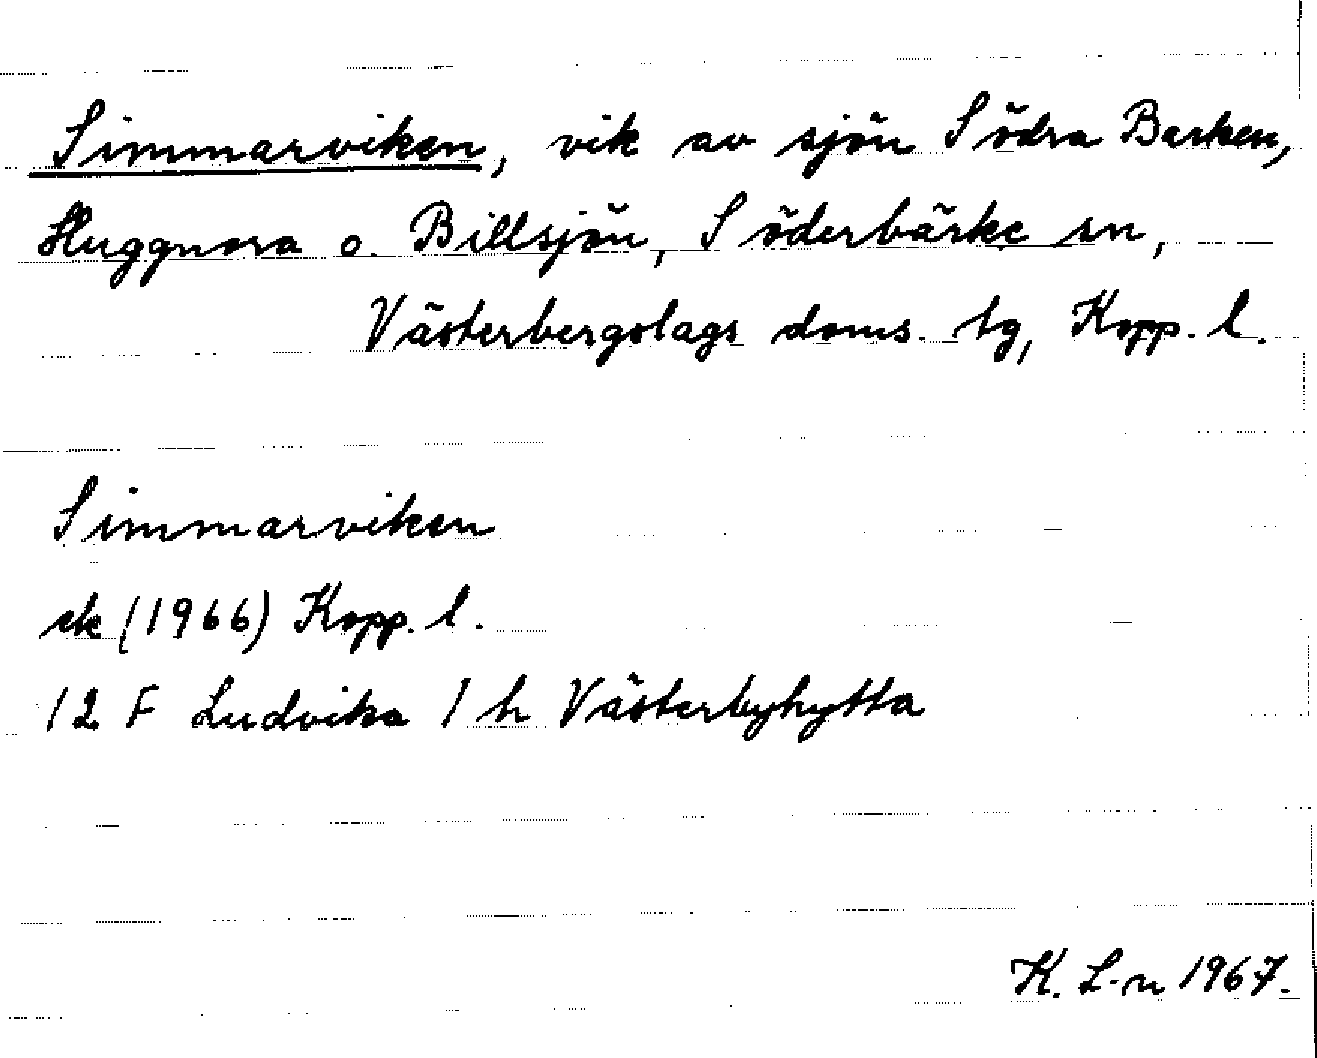 Simmarviken, vik av sjön Södra Barken,
Huggnora o. Billsjön, Söderbärke sn,
Västerbergslags doms. tg, Kopp. l.
Simmarviken
ek (1966) Kopp. l.
12 F Ludvika 1 h Västerbyhytta
K. L-n 1967.